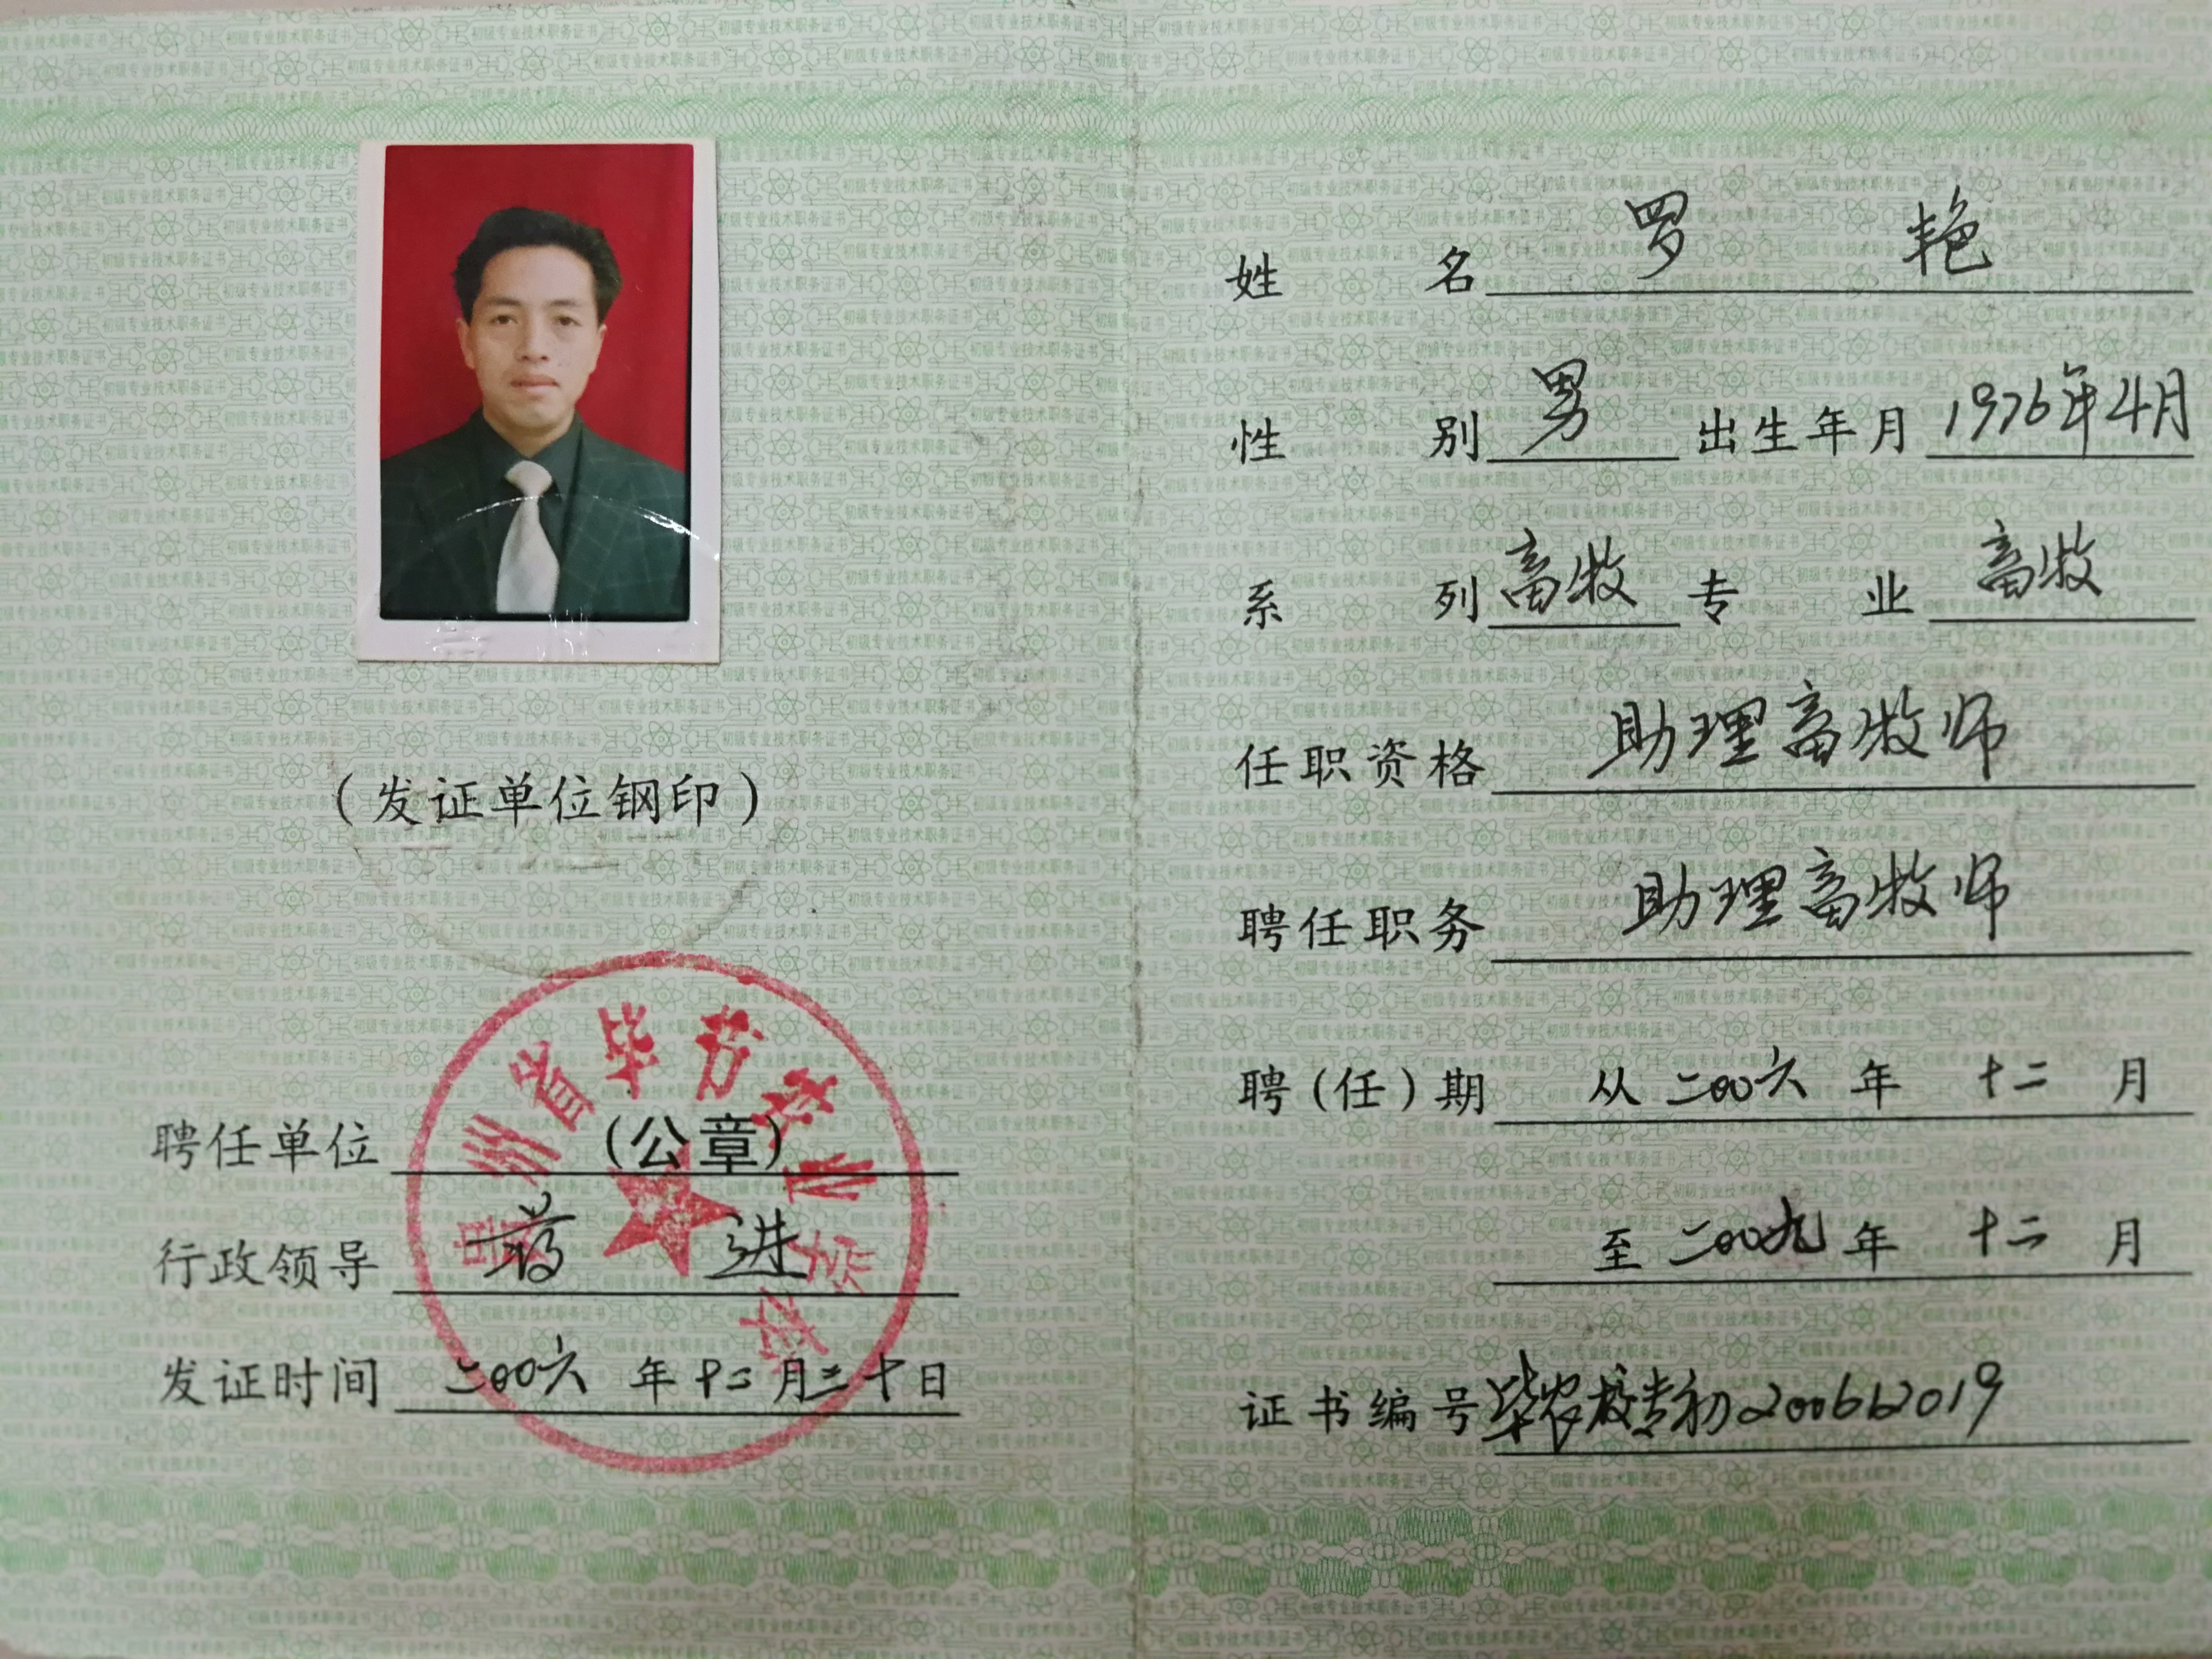 (发证单位钢印)
贵州省毕节农业学校
聘任单位 (公章)
行政领导 蒋进
发证时间 二00六 年 十二 月 二十 日
姓 名 罗 艳
性 别 男 出生年月 1976年4月
系 列 畜牧 专 业 畜牧
任职资格 助理畜牧师
聘任职务 助理畜牧师
聘(任)期 从 二00六 年 十二 月
至 二00九 年 十二 月
证书编号 毕农校专初200612019